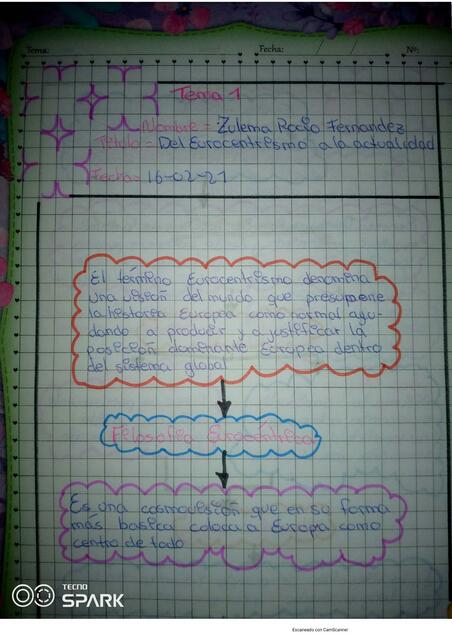 Tema:
Fecha: / /
Nº:
Tema 1
Nombre = Zulema Rocio Fernandez
Título = Del Eurocentrismo a la actualidad
Fecha= 16-02-21
El término Eurocentrismo denomina
una visión del mundo que presupone
la historia Europea como normal ayu-
dando a producir y a justificar la
posición dominante Europea dentro
del sistema global
Filosofia Eurocéntrica
Es una cosmovisión que en su forma
más basica coloca a Europa como
centro de todo
TECNO
SPARK
Escaneado con CamScanner